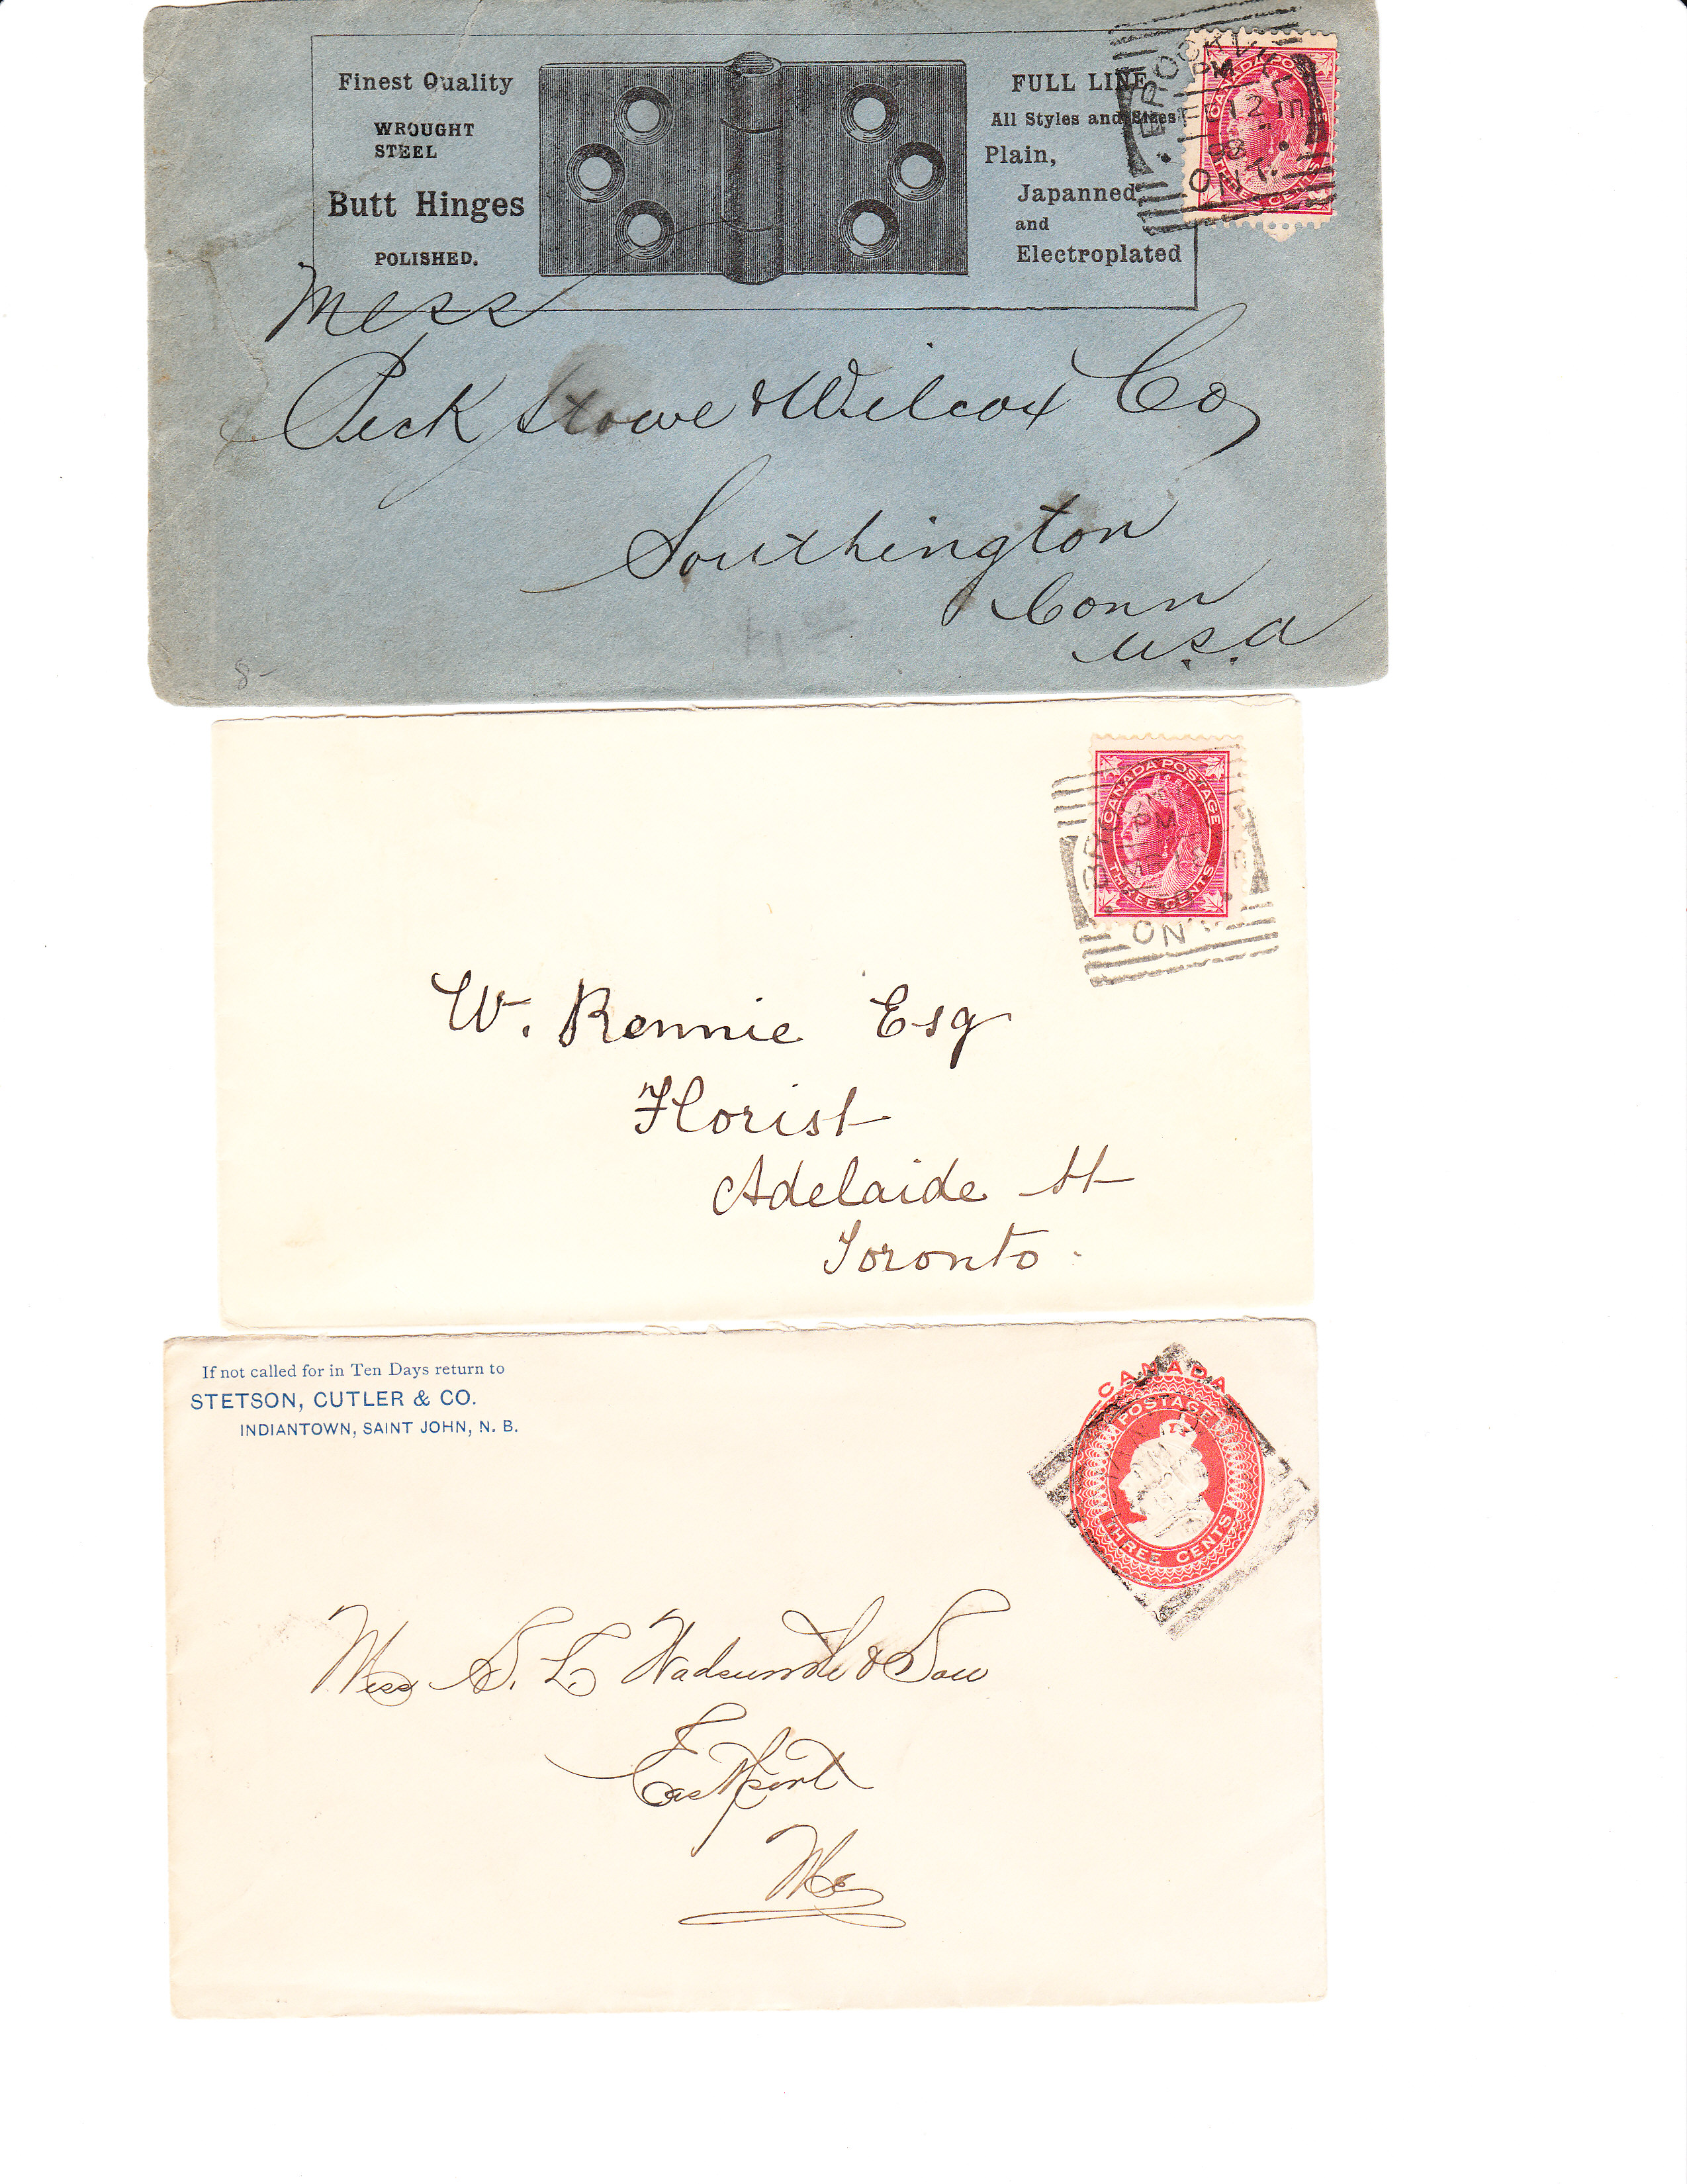 Finest Quality
WROUGHT
STEEL
Butt Hinges
POLISHED.
FULL LINE
All Styles and Sizes
Plain,
Japanned
and
Electroplated
BROCKVILLE
PM
98
ONT.
CANADA POSTAGE
THREE CENTS
Mess
Peck Stowe & Wilcox Co
Southington
Conn
U.S.A
8-
CANADA POSTAGE
THREE CENTS
PM
ONT
W. Rennie Esq
Florist
Adelaide St
Toronto
If not called for in Ten Days return to
STETSON, CUTLER & CO.
INDIANTOWN, SAINT JOHN, N. B.
CANADA
POSTAGE
THREE CENTS
Mess S. L. Wadsworth & Son
Eastport
Me